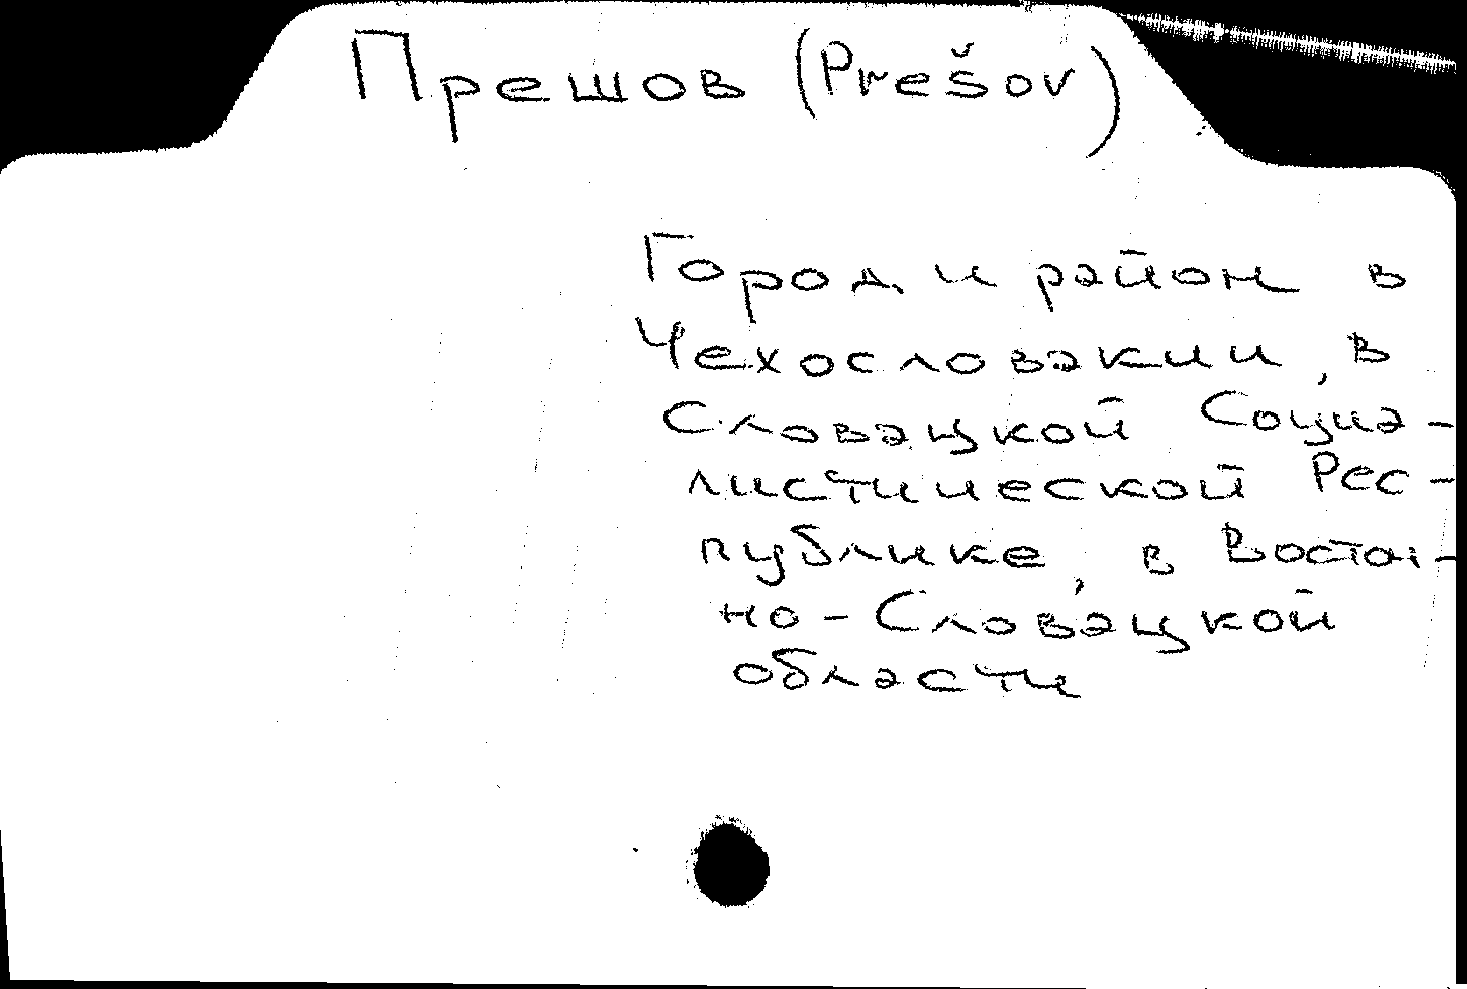 Прешов (Prešov)
Город и район в
Чехословакии, в
Словацкой Социа-
листической Рес-
публике, в Восточ-
но-Словацкой
области